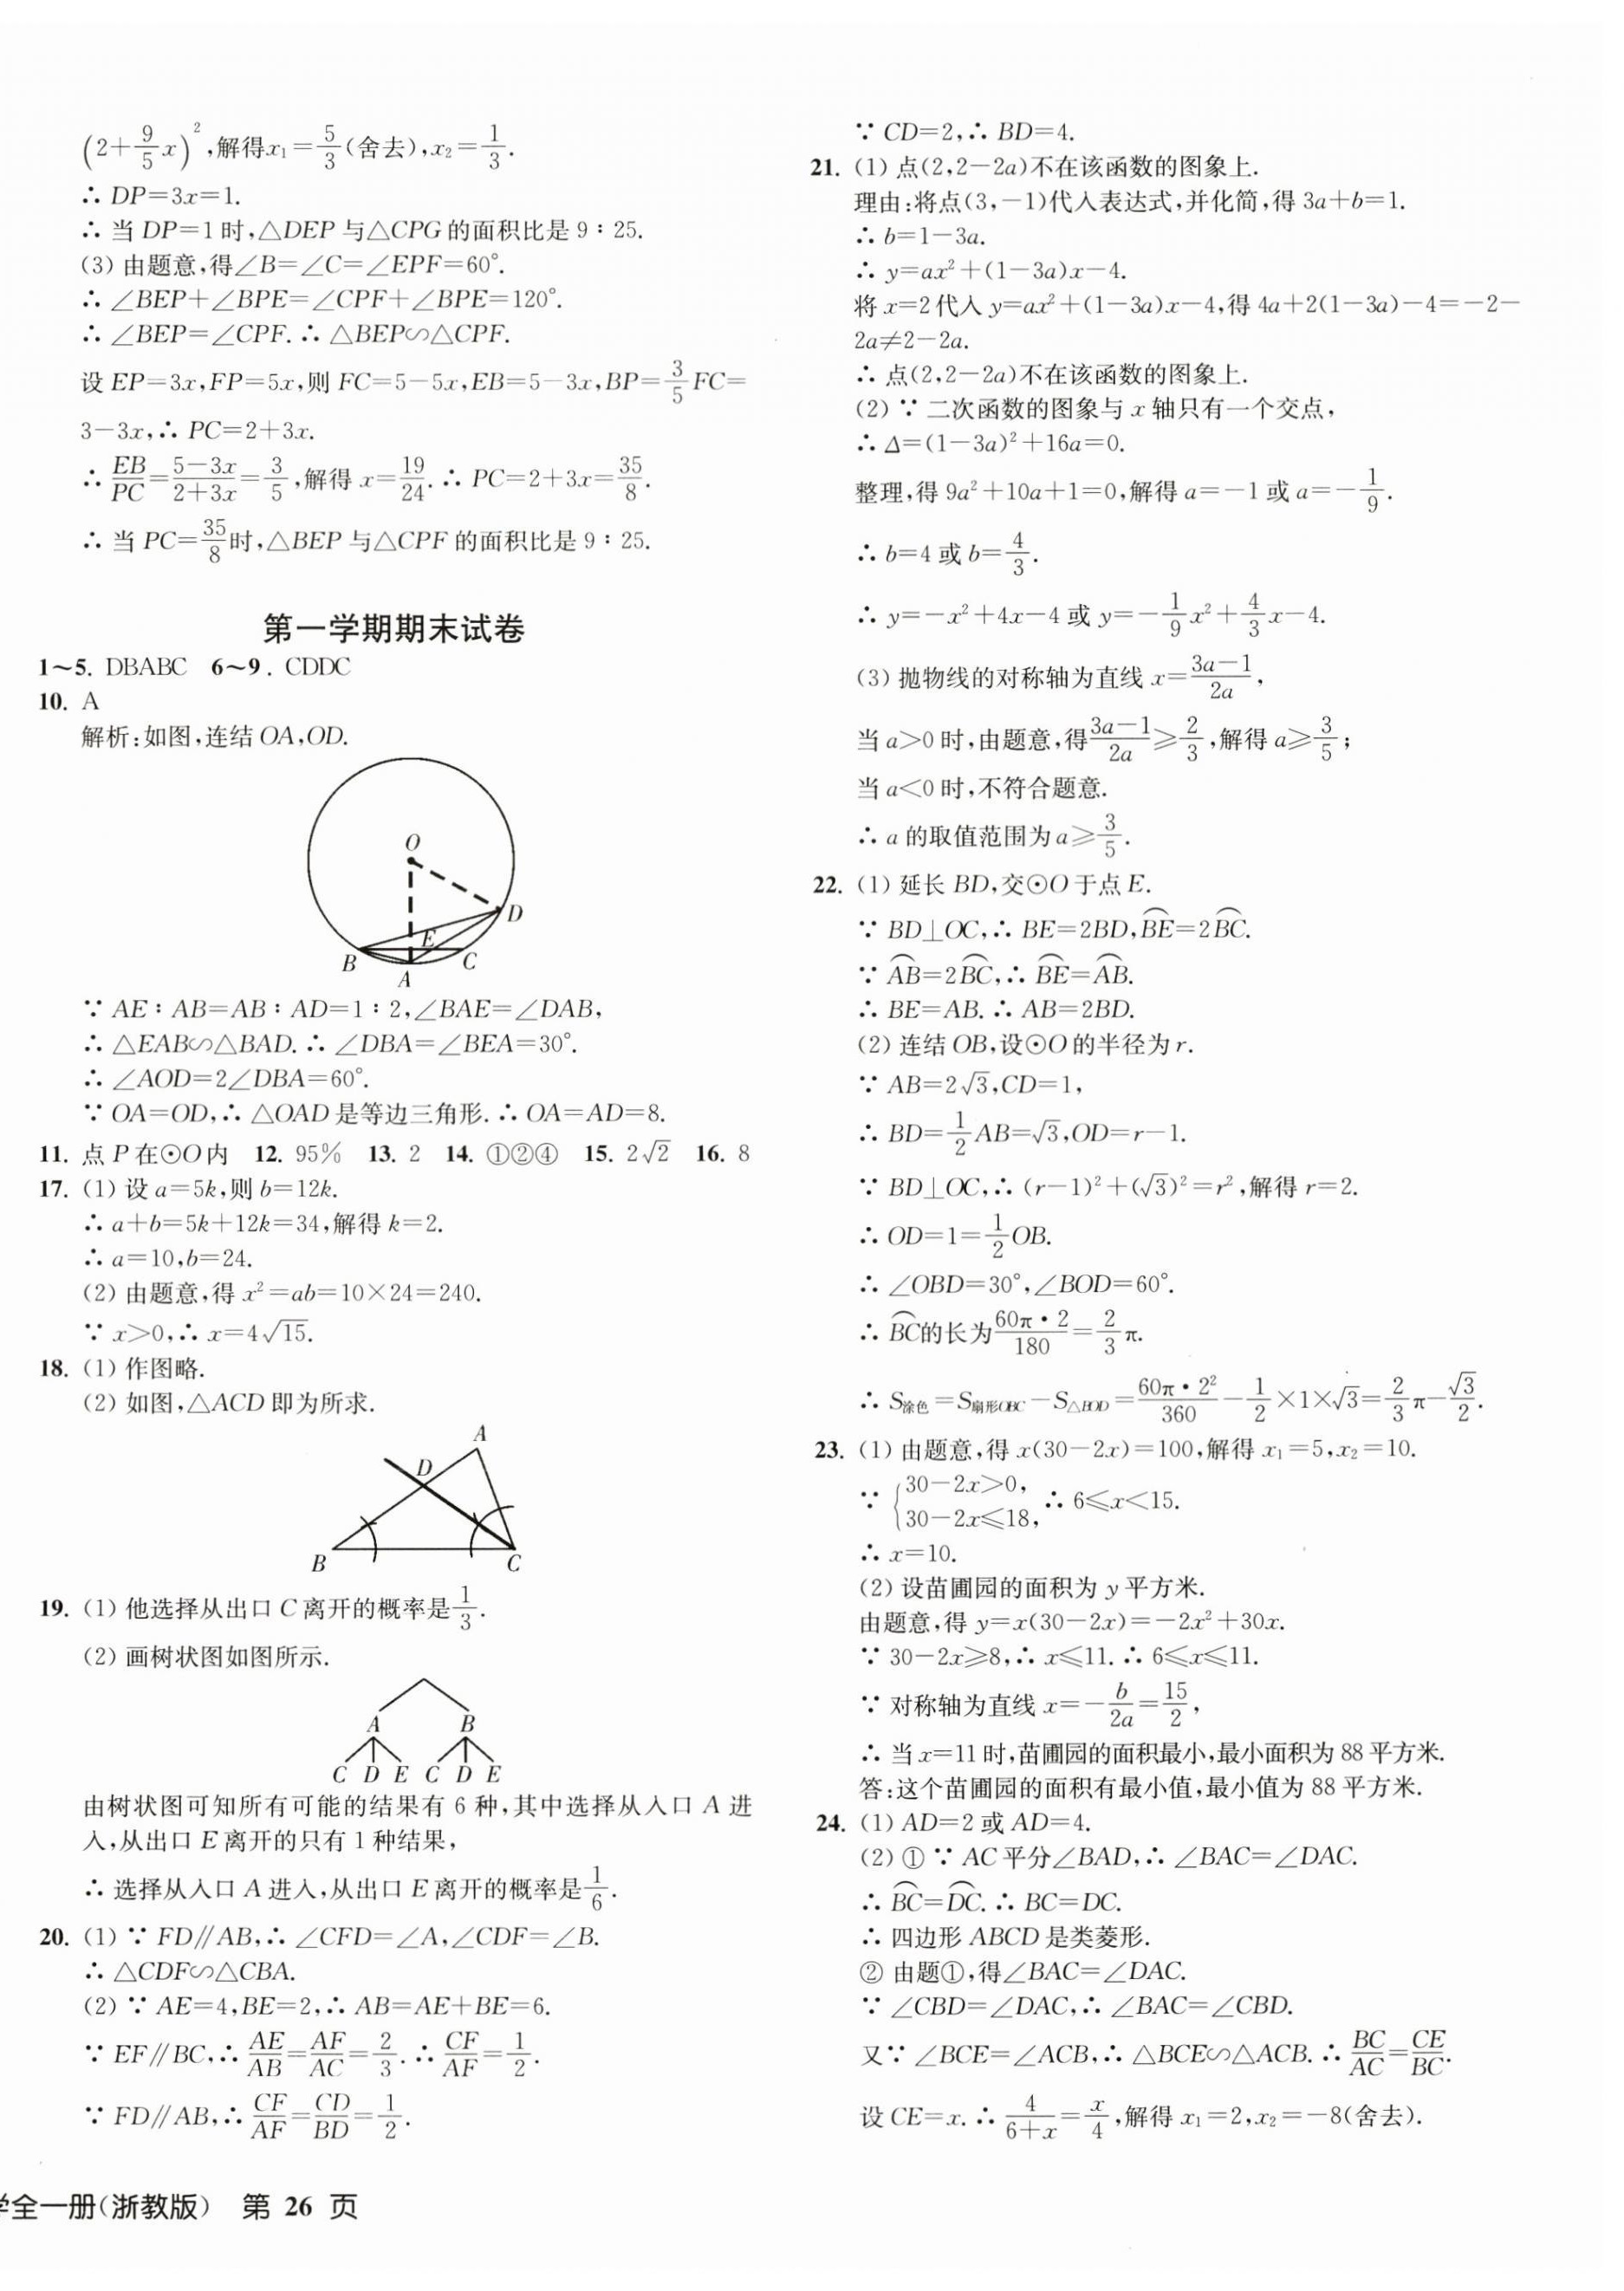 (2+9/5x)²,解得x₁=5/3(舍去),x₂=1/3.
∴ DP=3x=1.
∴ 当 DP=1 时,△DEP 与△CPG 的面积比是 9∶25.
(3) 由题意,得∠B=∠C=∠EPF=60°.
∴ ∠BEP+∠BPE=∠CPF+∠BPE=120°.
∴ ∠BEP=∠CPF.∴ △BEP∽△CPF.
设 EP=3x,FP=5x,则 FC=5-5x,EB=5-3x,BP=3/5FC=
3-3x,∴ PC=2+3x.
∴ EB/PC=(5-3x)/(2+3x)=3/5,解得 x=19/24.∴ PC=2+3x=35/8.
∴ 当 PC=35/8时,△BEP 与△CPF 的面积比是 9∶25.
第一学期期末试卷
1~5. DBABC 6~9. CDDC
10. A
解析:如图,连结 OA,OD.
O
D
E
B
C
A
∵ AE∶AB=AB∶AD=1∶2,∠BAE=∠DAB,
∴ △EAB∽△BAD.∴ ∠DBA=∠BEA=30°.
∴ ∠AOD=2∠DBA=60°.
∵ OA=OD,∴ △OAD 是等边三角形.∴ OA=AD=8.
11. 点 P 在⊙O 内 12. 95% 13. 2 14. ①②④ 15. 2√2 16. 8
17. (1) 设 a=5k,则 b=12k.
∴ a+b=5k+12k=34,解得 k=2.
∴ a=10,b=24.
(2) 由题意,得 x²=ab=10×24=240.
∵ x>0,∴ x=4√15.
18. (1) 作图略.
(2) 如图,△ACD 即为所求.
A
D
B
C
19. (1) 他选择从出口 C 离开的概率是1/3.
(2) 画树状图如图所示.
A B
C D E C D E
由树状图可知所有可能的结果有 6 种,其中选择从入口 A 进
入,从出口 E 离开的只有 1 种结果,
∴ 选择从入口 A 进入,从出口 E 离开的概率是1/6.
20. (1) ∵ FD∥AB,∴ ∠CFD=∠A,∠CDF=∠B.
∴ △CDF∽△CBA.
(2) ∵ AE=4,BE=2,∴ AB=AE+BE=6.
∵ EF∥BC,∴ AE/AB=AF/AC=2/3.∴ CF/AF=1/2.
∵ FD∥AB,∴ CF/AF=CD/BD=1/2.
学全一册(浙教版) 第 26 页
∵ CD=2,∴ BD=4.
21. (1) 点(2,2-2a)不在该函数的图象上.
理由:将点(3,-1)代入表达式,并化简,得 3a+b=1.
∴ b=1-3a.
∴ y=ax²+(1-3a)x-4.
将 x=2 代入 y=ax²+(1-3a)x-4,得 4a+2(1-3a)-4=-2-
2a≠2-2a.
∴ 点(2,2-2a)不在该函数的图象上.
(2) ∵ 二次函数的图象与 x 轴只有一个交点,
∴ Δ=(1-3a)²+16a=0.
整理,得 9a²+10a+1=0,解得 a=-1 或 a=-1/9.
∴ b=4 或 b=4/3.
∴ y=-x²+4x-4 或 y=-1/9x²+4/3x-4.
(3) 抛物线的对称轴为直线 x=(3a-1)/2a,
当 a>0 时,由题意,得(3a-1)/2a≥2/3,解得 a≥3/5;
当 a<0 时,不符合题意.
∴ a 的取值范围为 a≥3/5.
22. (1) 延长 BD,交⊙O 于点 E.
∵ BD⊥OC,∴ BE=2BD,B͡E=2B͡C.
∵ A͡B=2B͡C,∴ B͡E=A͡B.
∴ BE=AB.∴ AB=2BD.
(2) 连结 OB,设⊙O 的半径为 r.
∵ AB=2√3,CD=1,
∴ BD=1/2AB=√3,OD=r-1.
∵ BD⊥OC,∴ (r-1)²+(√3)²=r²,解得 r=2.
∴ OD=1=1/2OB.
∴ ∠OBD=30°,∠BOD=60°.
∴ B͡C的长为60π·2/180=2/3π.
∴ S涂色=S扇形OBC-S△BOD=60π·2²/360-1/2×1×√3=2/3π-√3/2.
23. (1) 由题意,得 x(30-2x)=100,解得 x₁=5,x₂=10.
∵ {30-2x>0, 30-2x≤18, ∴ 6≤x<15.
∴ x=10.
(2) 设苗圃园的面积为 y 平方米.
由题意,得 y=x(30-2x)=-2x²+30x.
∵ 30-2x≥8,∴ x≤11.∴ 6≤x≤11.
∵ 对称轴为直线 x=-b/2a=15/2,
∴ 当 x=11 时,苗圃园的面积最小,最小面积为 88 平方米.
答:这个苗圃园的面积有最小值,最小值为 88 平方米.
24. (1) AD=2 或 AD=4.
(2) ① ∵ AC 平分∠BAD,∴ ∠BAC=∠DAC.
∴ B͡C=D͡C.∴ BC=DC.
∴ 四边形 ABCD 是类菱形.
② 由题①,得∠BAC=∠DAC.
∵ ∠CBD=∠DAC,∴ ∠BAC=∠CBD.
又∵ ∠BCE=∠ACB,∴ △BCE∽△ACB.∴ BC/AC=CE/BC.
设 CE=x.∴ 4/(6+x)=x/4,解得 x₁=2,x₂=-8(舍去).